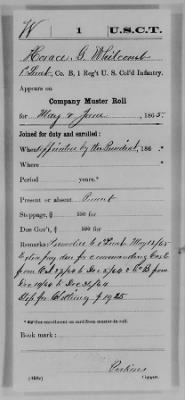 W | 1 | U.S.C.T.
Horace G. Whitcomb
1 Lieut, Co. B, 1 Reg't U. S. Col'd Infantry.
Appears on
Company Muster Roll
for May & June, 1865.
Joined for duty and enrolled:
When Appointed by the President, 186 .*
Where
Period years.*
Present or absent Present
Stoppage, $ 100 for
Due Gov't, $ 100 for
Remarks: Promotion to 1 Lieut May 13/65
Extra pay due for commanding Co
from Oct 27/64 to Dec 5/64 & Co B from
Dec 19/64 to Dec 31/64
Stop for Clothing $19.25
*See enrollment on card from muster-in roll.
Book mark:
Perkins
(858c) Copyist.